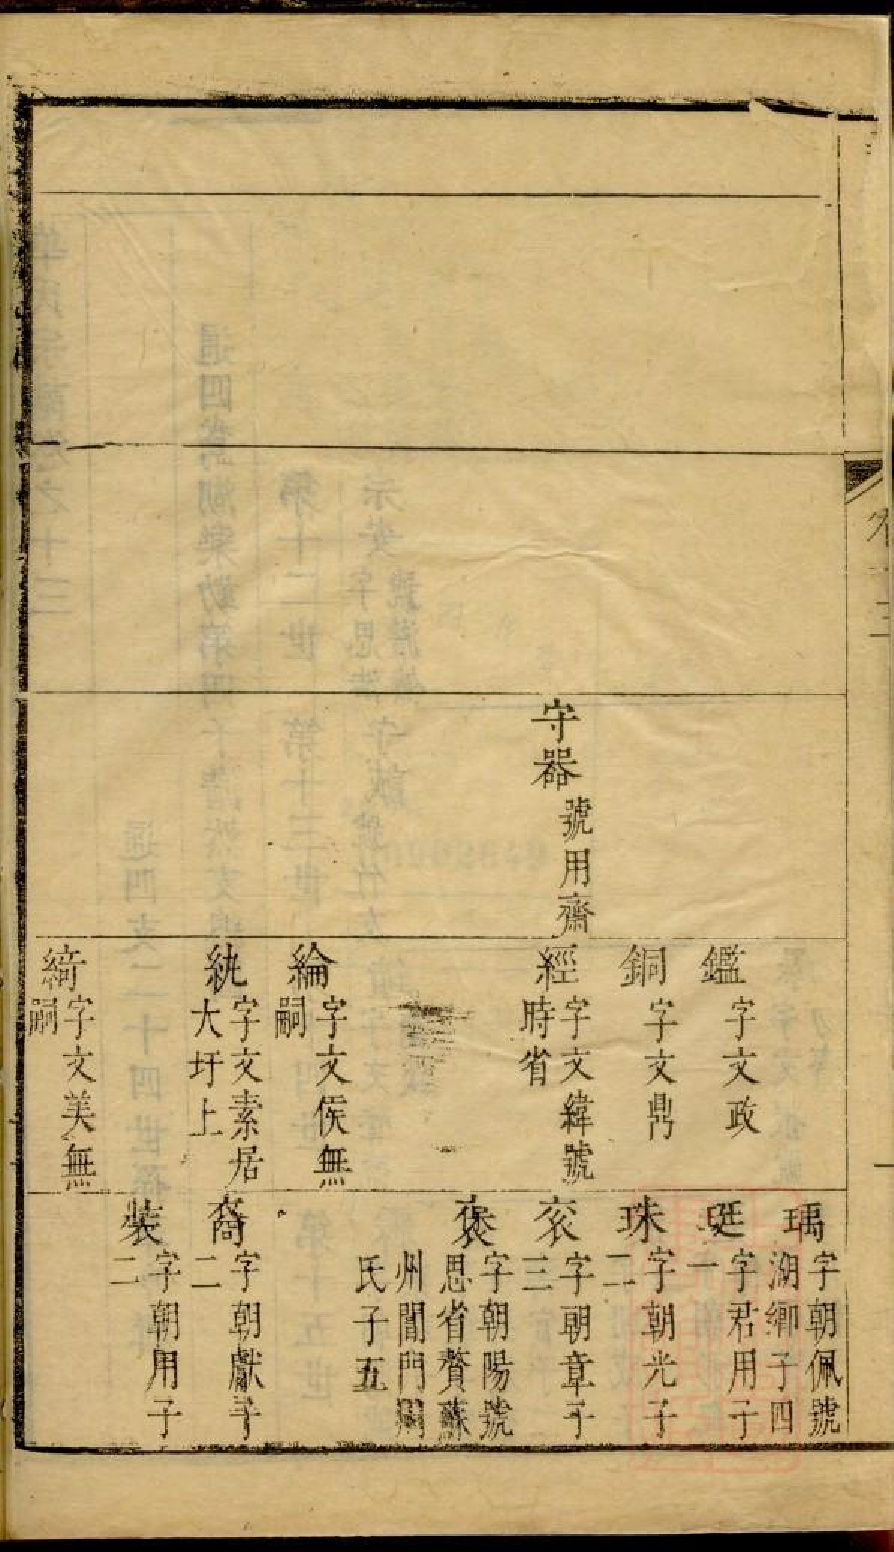 守器
號用齋
鑑
字文政
銅
字文鼎
經
字文緯號
時省
綸
字文侯無
嗣
紈
字文素居
大圩上
綺
字文美無
嗣
瑀
字朝佩號
湖卿子四
珽
字君用子
一
珠
字朝光子
二
衮
字朝章子
三
褒
字朝陽號
思省贅蘇
州閶門
氏子五
裔
字朝獻子
二
裝
字朝用子
二